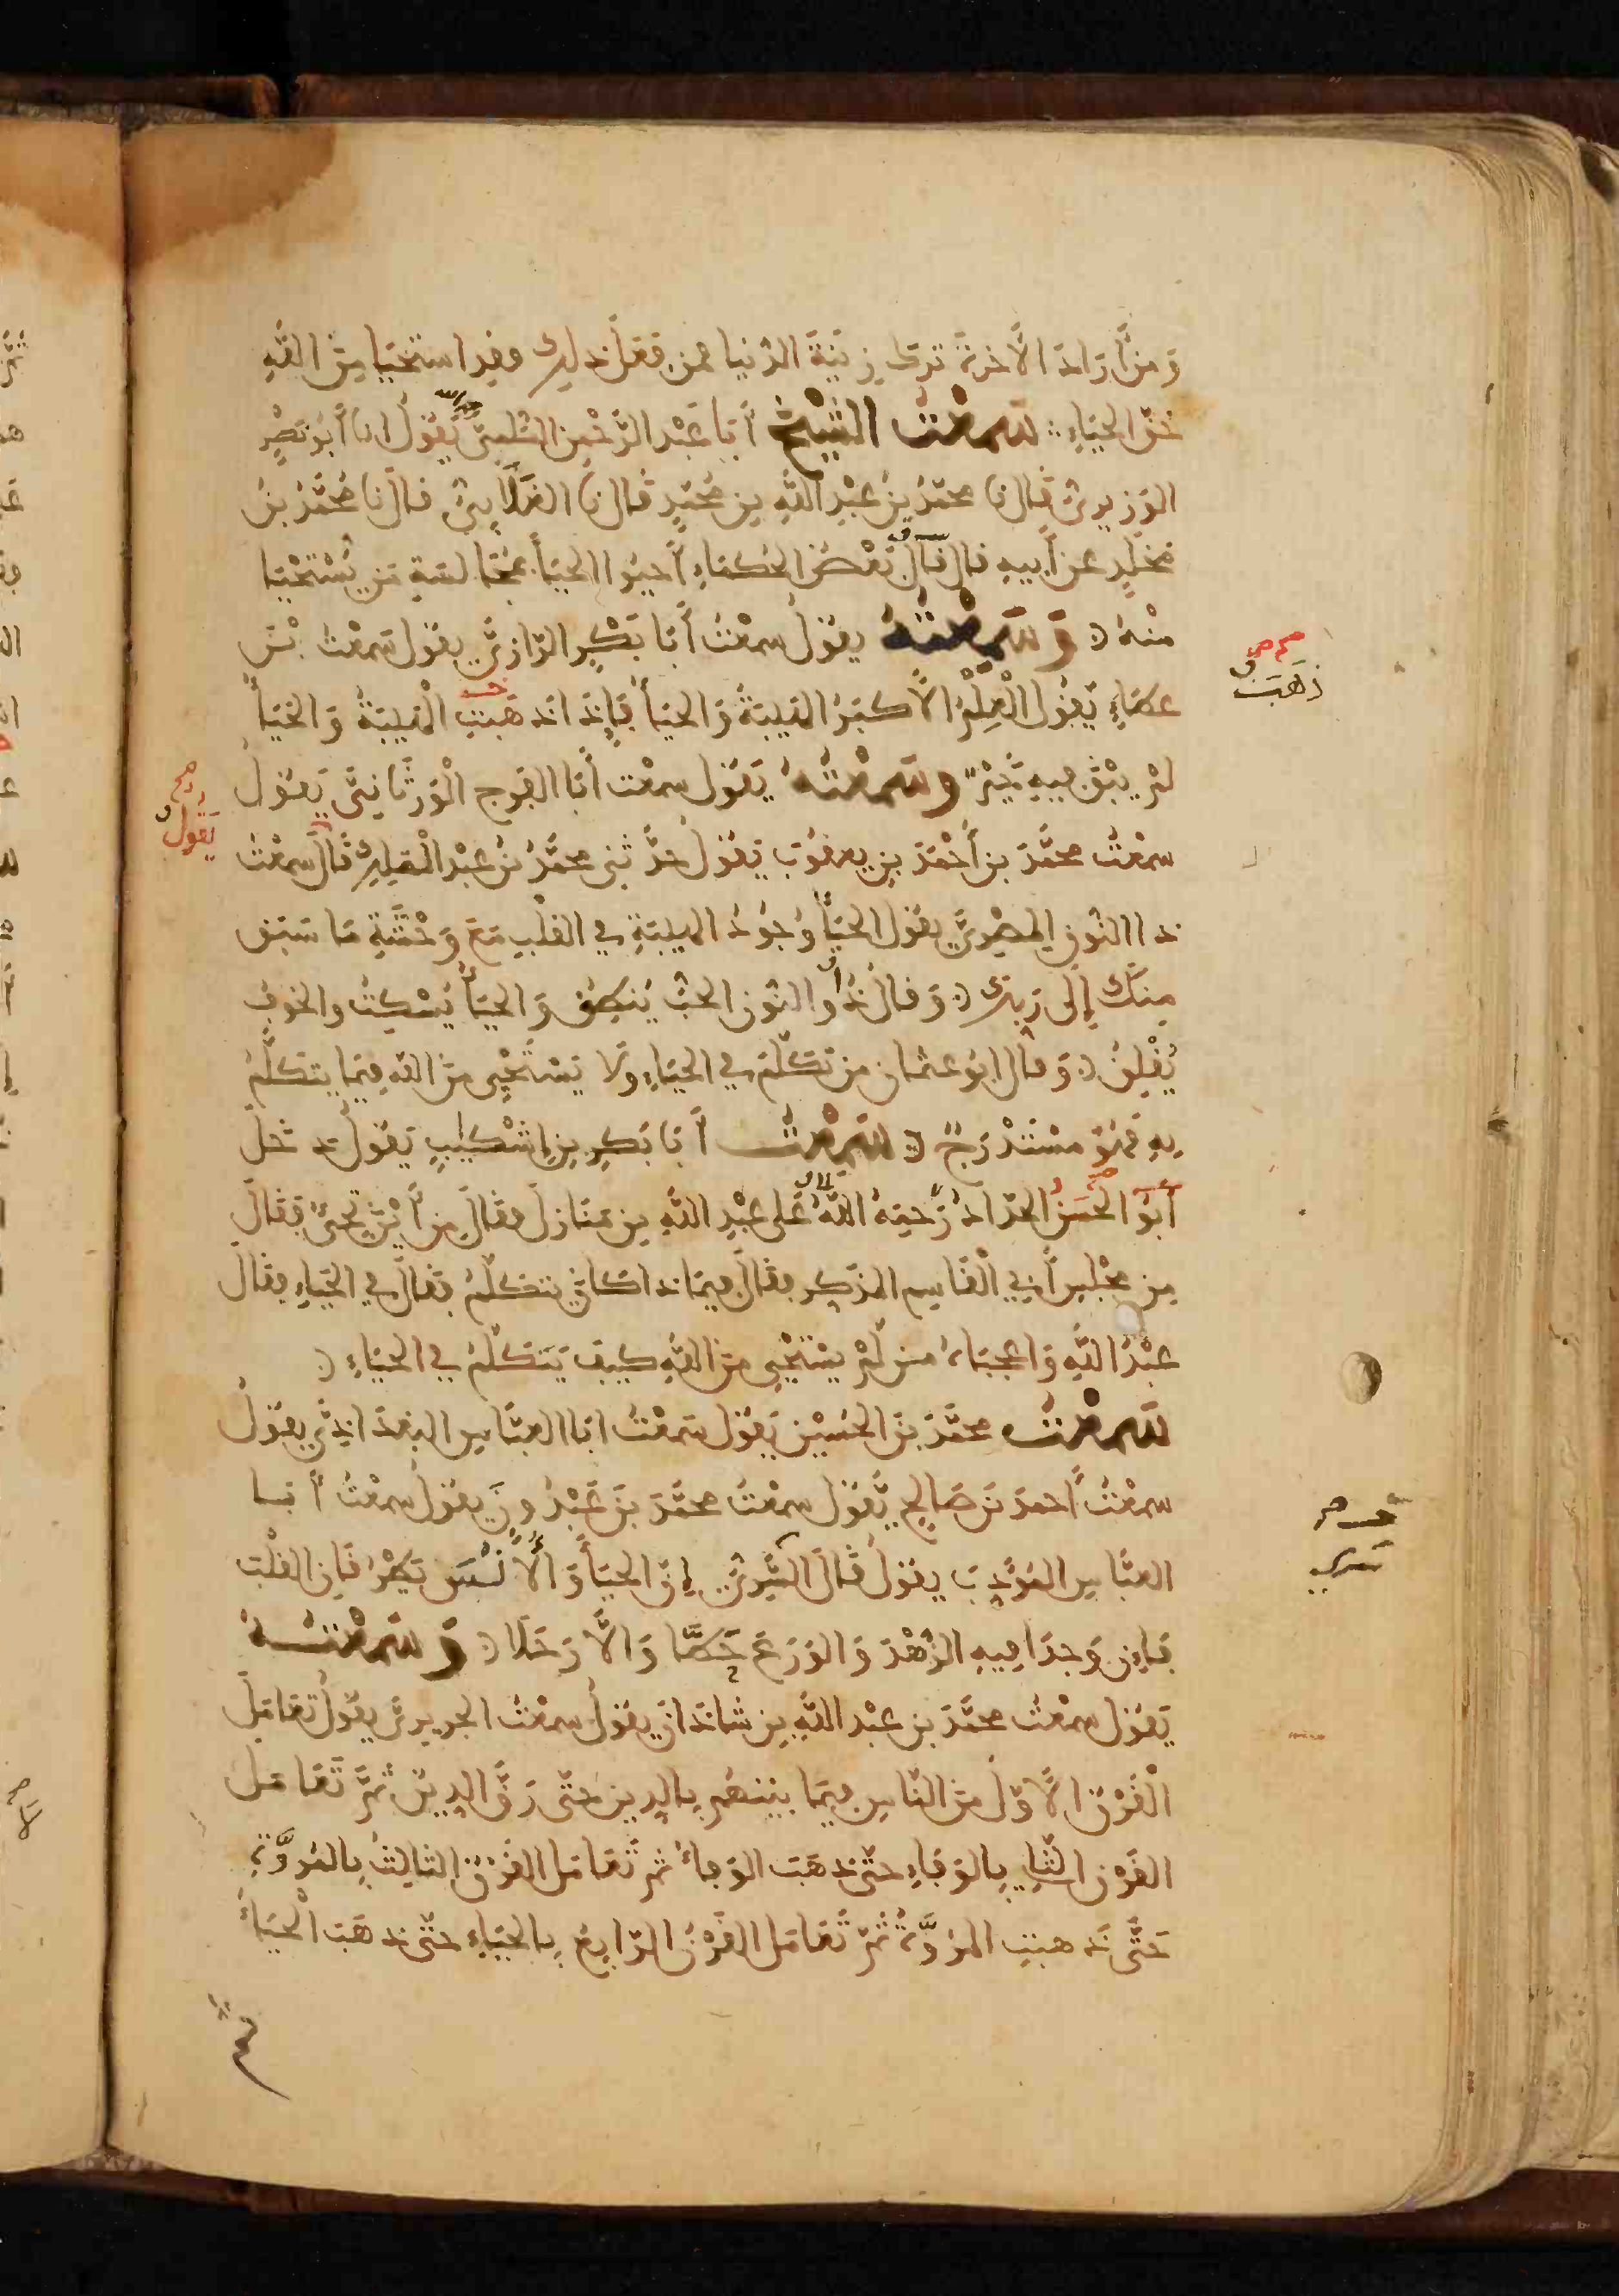 وَمَنْ أَرَادَ الْآخِرَةَ تَرَكَ زِينَةَ الدُّنْيَا فمن فَعَلَ ذلك فقد اسْتَحْيَا مِنَ اللَّهِ
حَقَّ الْحَيَاءِ سَمِعْتُ الشَّيْخَ أَبَا عَبْدِ الرَّحْمٰنِ السُّلَمِيَّ يَقُولُ انا أَبُو نَصْرٍ
الوَزِيرِيُّ قَالَ نا محمّدُ بنُ عَبْدِ اللَّهِ بنِ مُحَمَّدٍ قَالَ نَا الغَلَّابِيُّ قال نَا مُحَمَّدُ بنُ
مَخْلَدٍ عن أَبِيهِ قال قَالَ بَعْضُ الحُكَمَاءِ أَحْيُوا الحَيَاءَ بِمُجَالَسَةِ مَن يُسْتَحْيَا
مِنْهُ وَسَمِعْتُهُ يقولُ سمعْتُ أَبَا بَكْرٍ الرَّازِيَّ يقول سَمِعْتُ ابْنَ
عَطَاءٍ يَقُولُ الْعِلْمُ الْأَكْبَرُ الهَيْبَةُ وَالحَيَاءُ فَإِذَا ذَهَبَتِ الْهَيْبَةُ وَالْحَيَاءُ
لَمْ يَبْقَ فِيهِ خَيْرٌ وسَمِعْتُهُ يَقُولُ سمعْت أَبَا الفَرَجِ الْوَرَثَانِيَّ يَقُولُ
سمعْتُ محمَّدَ بن أَحْمَدَ بنِ يعقوبَ يَقُولُ حَدَّثني محمَّدُ بنُ عَبْدِ الْمَلِكِ قَالَ سَمِعْتُ
ذا النُّونِ المِصْرِيَّ يقولُ الحَيَاءُ وُجُودُ الهَيْبَةِ في القَلْبِ مَعَ وَحْشَةِ مَا سَبَقَ
مِنْكَ إِلَى رَبِّكَ وَقال ذُو النُّونِ الحُبُّ يُنْطِقُ وَالحَيَاءُ يُسْكِتُ والخوفُ
يُقْلِقُ وَقال ابو عثمان من تَكَلَّمَ في الحَيَاءِ وَلَا يَسْتَحْيِي مِنَ اللَّهِ فِيمَا يتكلَّمُ
بِهِ فَهُوَ مُسْتَدْرَجٌ سَمِعْتُ أَبَا بَكْرِ بنَ إِشْكِيبٍ يَقُولُ دَخَلَ
أَبُو الحَسَنُ الحَدَّادُ رَحِمَهُ اللَّهُ عَلَى عَبْدِ اللَّهِ بنِ مَنَازِلَ فقَالَ مِنْ أَيْنَ تَجِيءُ فَقَالَ
مِن مَجْلِسِ أَبِي الْقَاسِمِ المذَكِّرِ فقَالَ فِيمَا ذا كَانَ يتَكَلَّمُ فَقَالَ في الحَيَاءِ فقَالَ
عَبْدُ اللَّهِ وَاعَجَبَاهُ من لَمْ يَسْتَحْيِ مِنَ اللَّهِ كيف يَتَكَلَّمُ في الحَيَاءِ
سَمِعْتُ محمَّدَ بنَ الحُسَيْنِ يَقُولُ سَمِعْتُ ابَا العَبَّاسِ البَغْدَاذِيَّ يقُولُ
سمعْتُ أَحمدَ بنَ صَالِحٍ يَقُولُ سمعْتُ محمَّدَ بنَ عَبْدُونَ يقولُ سمعْتُ أَبا
العبَّاسِ المُؤَدِّبَ يقولُ قَالَ السَّرِيُّ إِنَّ الحَيَاءَ وَالْأُنْسَ يَطْرُقَانِ القَلْبَ
فَإِنْ وَجَدَا فِيهِ الزُّهْدَ وَالوَرَعَ حَطَّا وَالَّا رَحَلَا وَسَمِعْتُهُ
يَقُولُ سمعْتُ محمَّدَ بنَ عَبْدِ اللَّهِ بنِ شَاذَانَ يقولُ سمعْتُ الجريريَّ يقُولُ تَعَامَلَ
الْقَرْنُ الْأَوَّلُ مِنَ النَّاسِ فِيمَا بَيْنَهُمْ بِالدِّينِ حتَّى رَقَّ الدِّينُ ثُمَّ تَعَامَلَ
القَرْنُ الثَّاني بِالوَفَاءِ حتَّى ذهَبَ الوَفاءُ ثم تَعَامَلَ القَرْنُ الثَالِثُ بِالمُرُوَّةِ
حَتَّى ذَهَبَتِ المرُوَّةُ ثُمَّ تَعَامَلَ القَرْنُ الرَّابِعُ بِالحَيَاءِ حتَّى ذهَبَ الْحَيَاءُ
ذَهَبَ
يَقُولُ